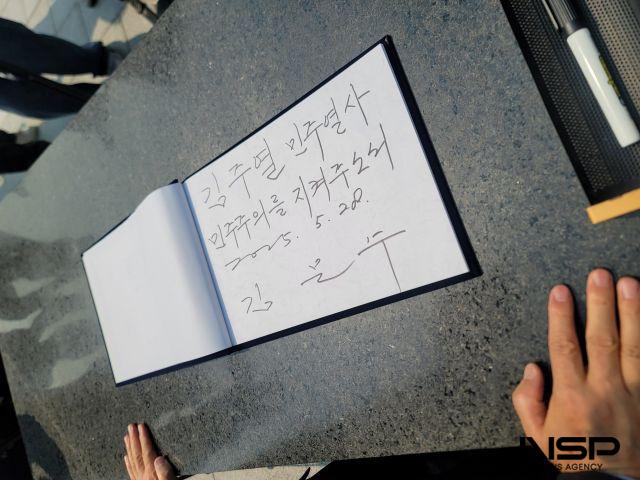 김주열 민주열사
민주주의를 지켜주소서
2025. 5. 28.
김 문 수
NSP
NEWS AGENCY